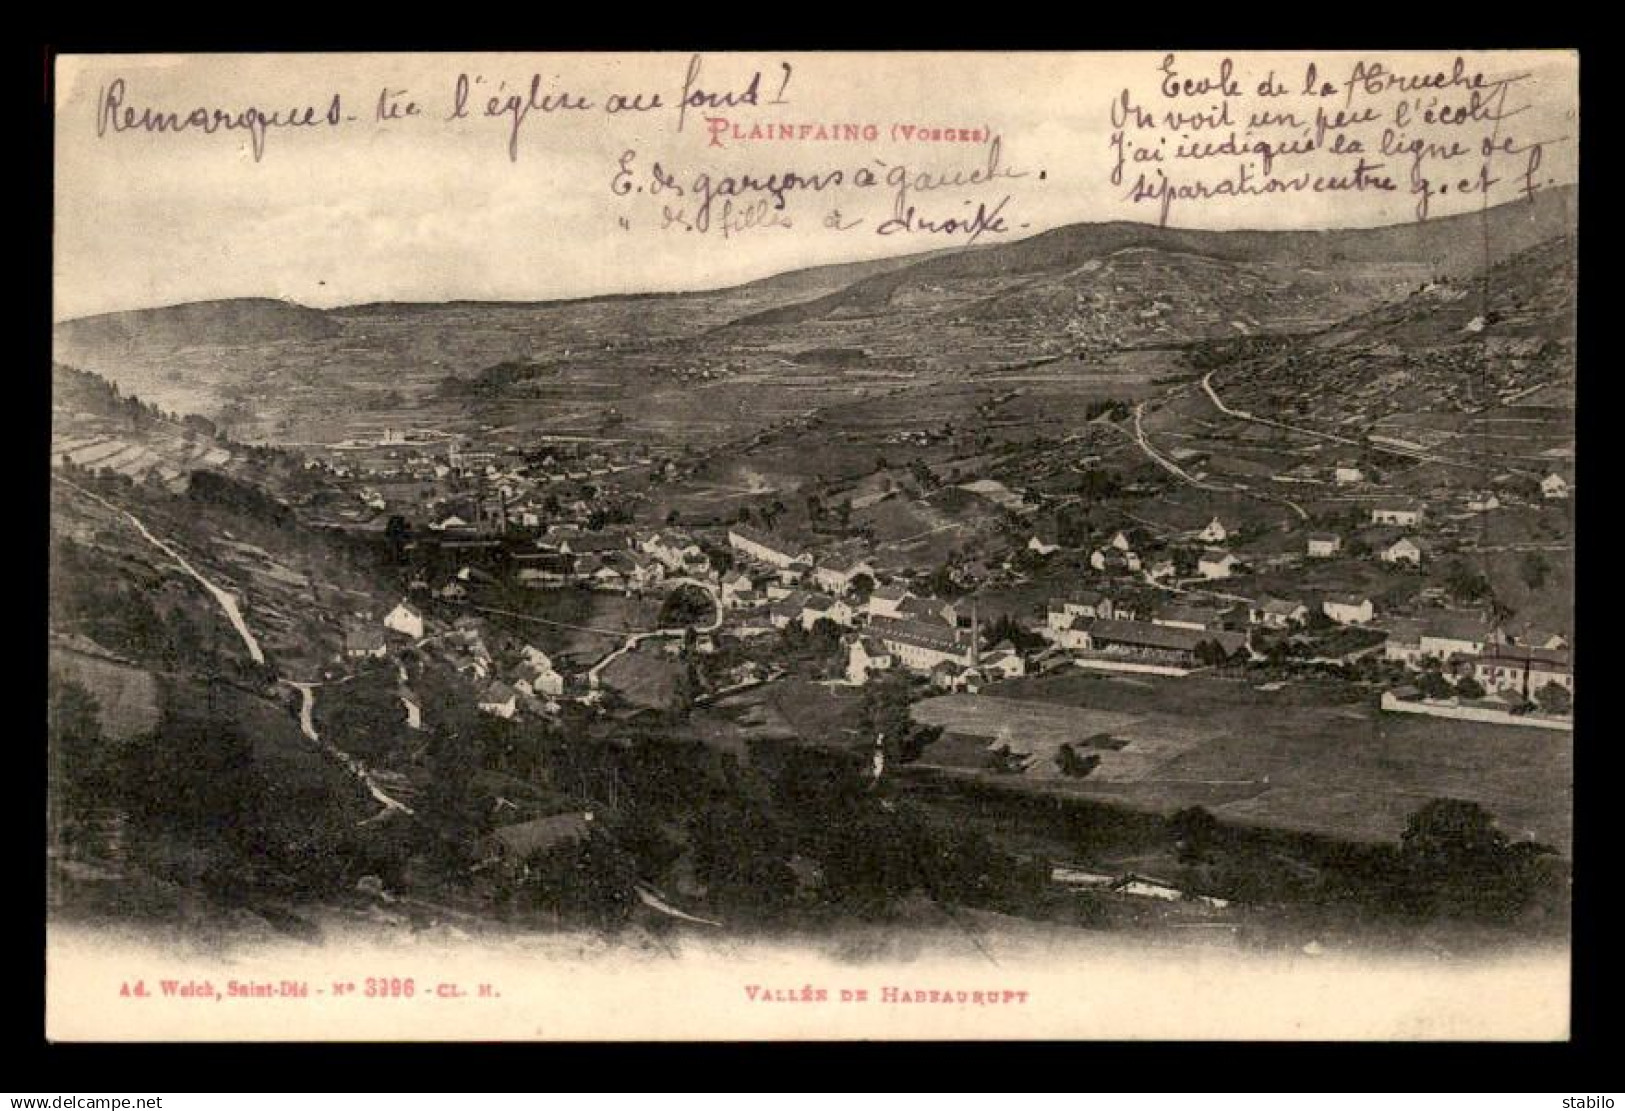 Remarques-tu l'église au fond?
PLAINFAING (VOSGES)
E. des garçons à gauche.
" des filles à droite.
Ecole de la Truche
On voit un peu l'école
J'ai indiqué la ligne de
séparation entre g. et f.
Ad. Weick, Saint-Dié - N° 3996 - CL. M.
VALLÉE DE HABEAURUPT
delcampe.net
stabilo